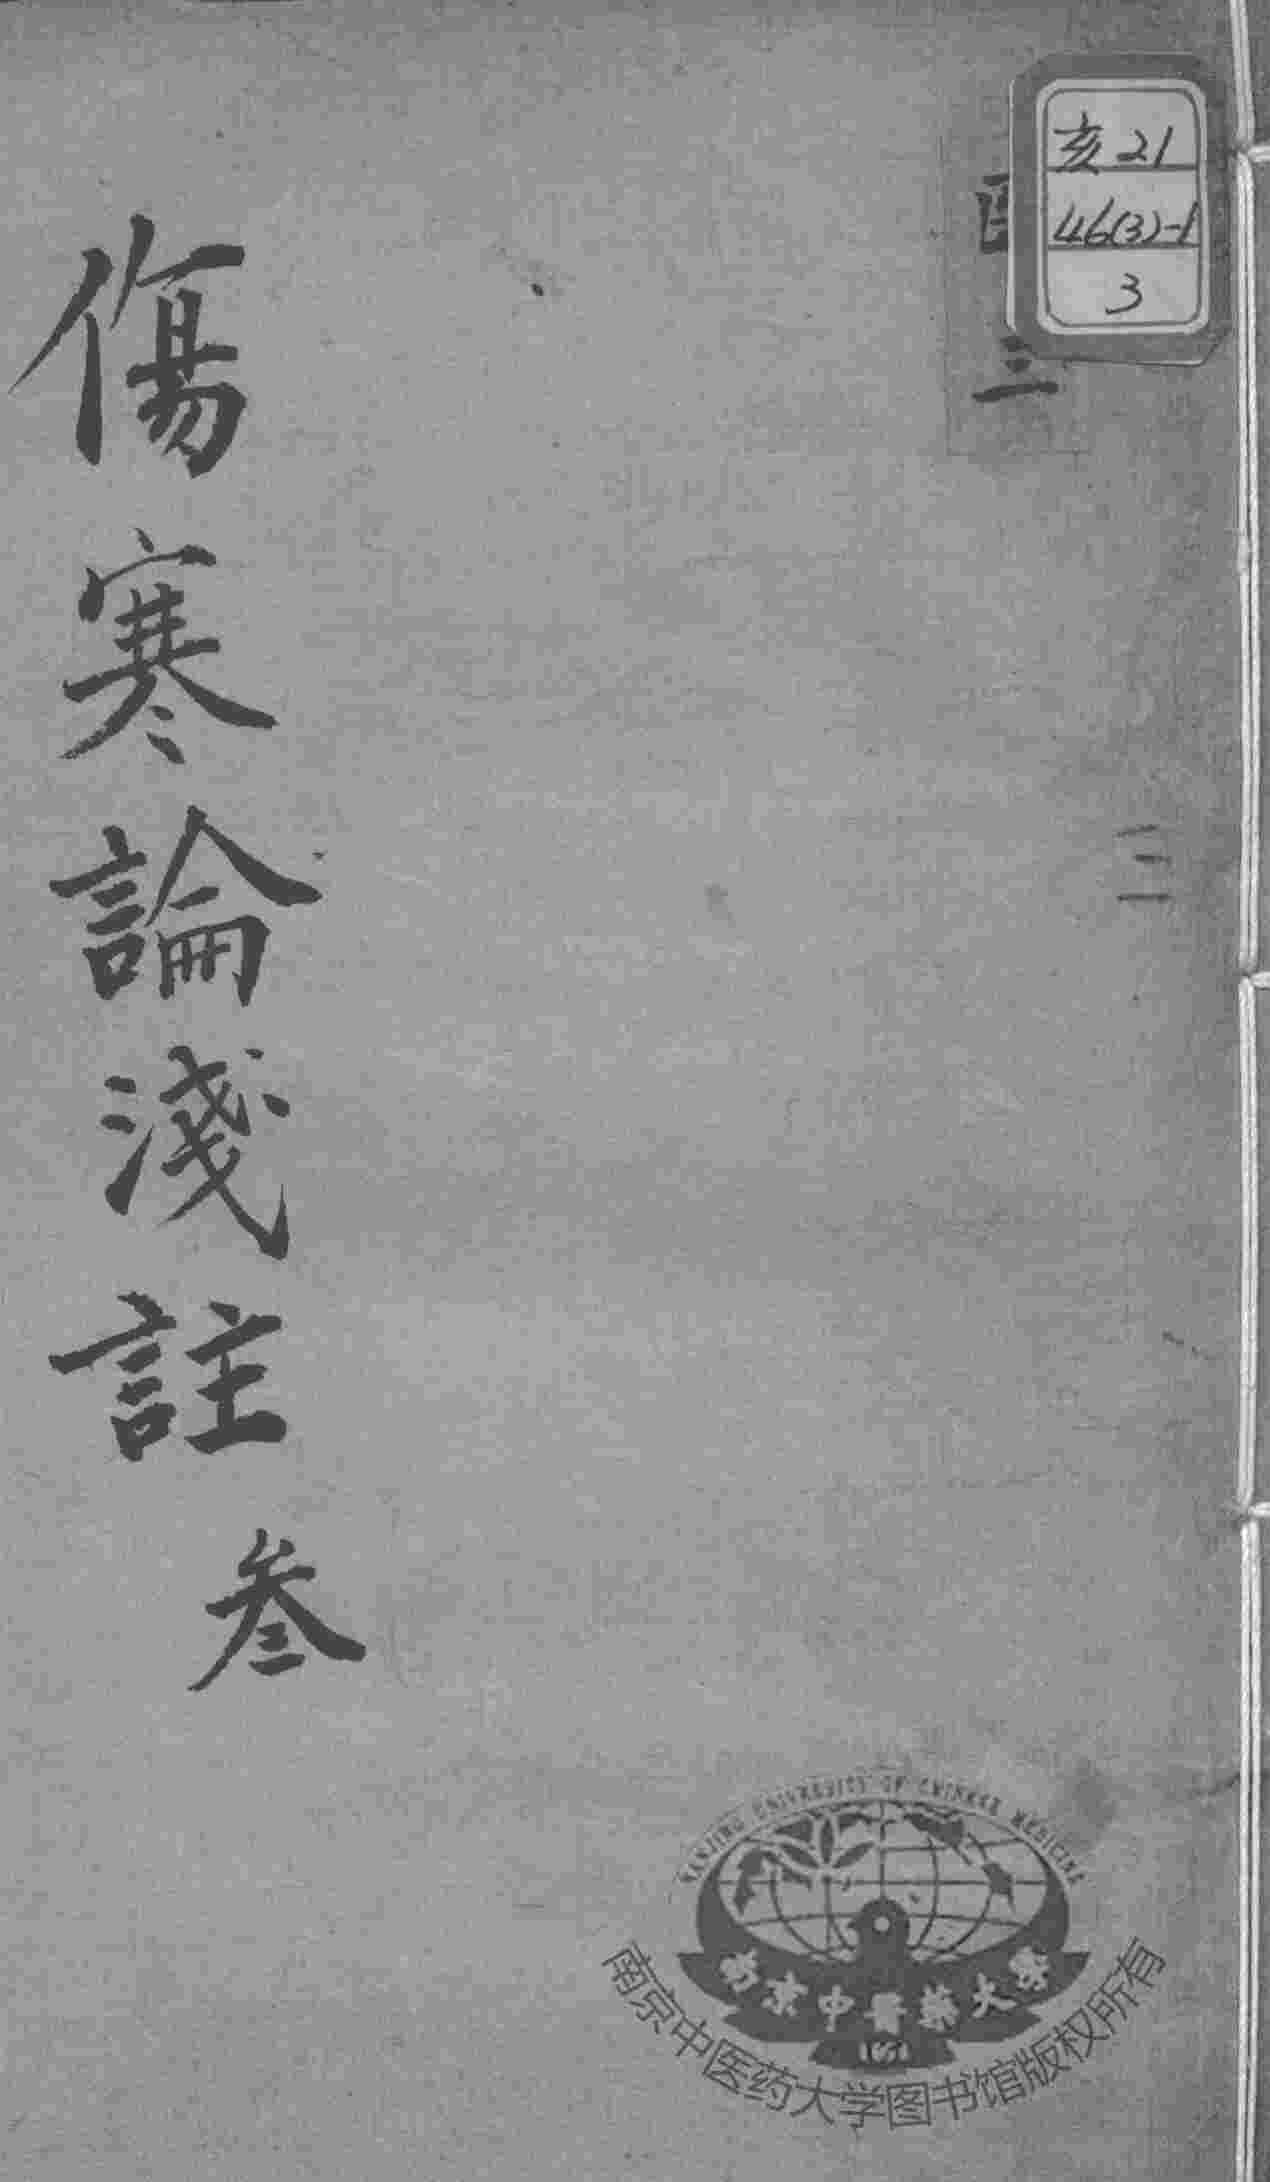 亥21
46(3)-1
3
三
三
傷寒論淺註
叁
NANJING UNIVERSITY OF CHINESE MEDICINE
南京中醫藥大學
南京中医药大学图书馆版权所有